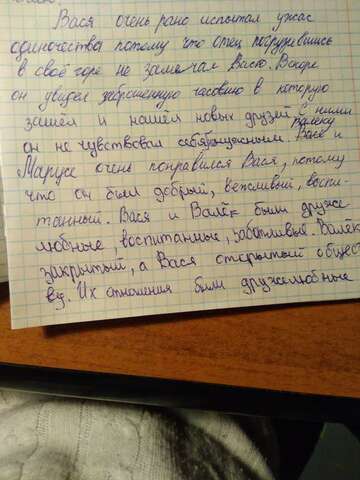 Вася очень рано испытал ужас
одиночества потому что отец погрузившись
в своё горе не замечал Васю. Вскоре
он увидел заброшенную часовню в которую
зашёл и нашёл новых друзей с ними
он не чувствовал себя брошенным. Валеку и
Марусе очень понравился Вася, потому
что он был добрый, вежливый, воспи-
танный. Вася и Валёк были друже-
любные воспитанные, заботливые. Валёк
закрытый, а Вася открытый общес
ву. Их отношения были дружелюбные